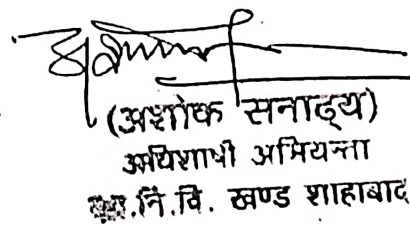 (अशोक सनाढ्य)
अधिशाषी अभियन्ता
.नि.वि. खण्ड शाहाबाद